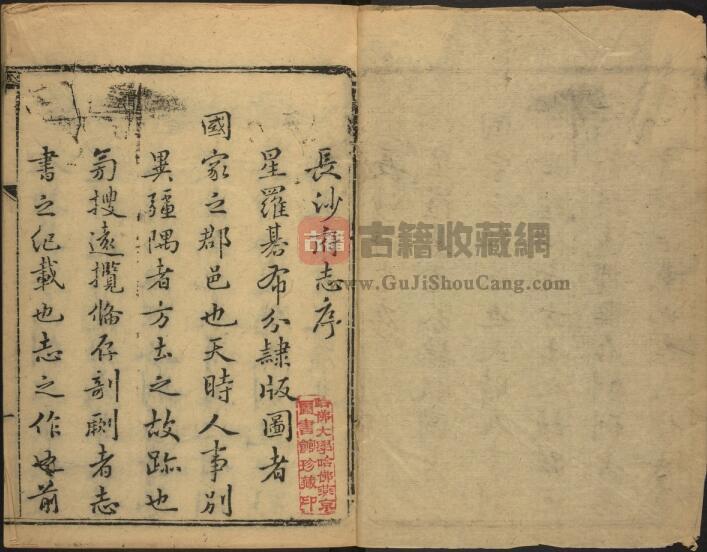 長沙府志序
星羅碁布分隷版圖者
國家之郡邑也天時人事別
異疆隅者方土之故跡也
旁搜遠攬倫存剞劂者志
書之紀載也志之作也前
哈佛大學哈佛燕京
圖書館珍藏印
古籍
古籍收藏網
www.GuJiShouCang.com